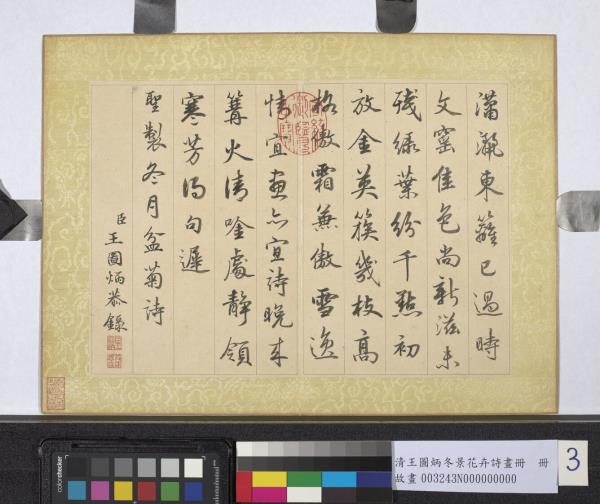 瀟灑東籬已過時
文窰佳色尚新滋未
殘綠葉紛千點初
放金英簇幾枝高
格傲霜兼傲雪逸
情宜畫亦宜詩晚來
篝火清唫處靜領
寒芳得句遲
聖製冬月盆菊詩
臣王圖炳恭錄
清王圖炳冬景花卉詩畫冊 冊
故畫003243N000000000
3
colorchecker